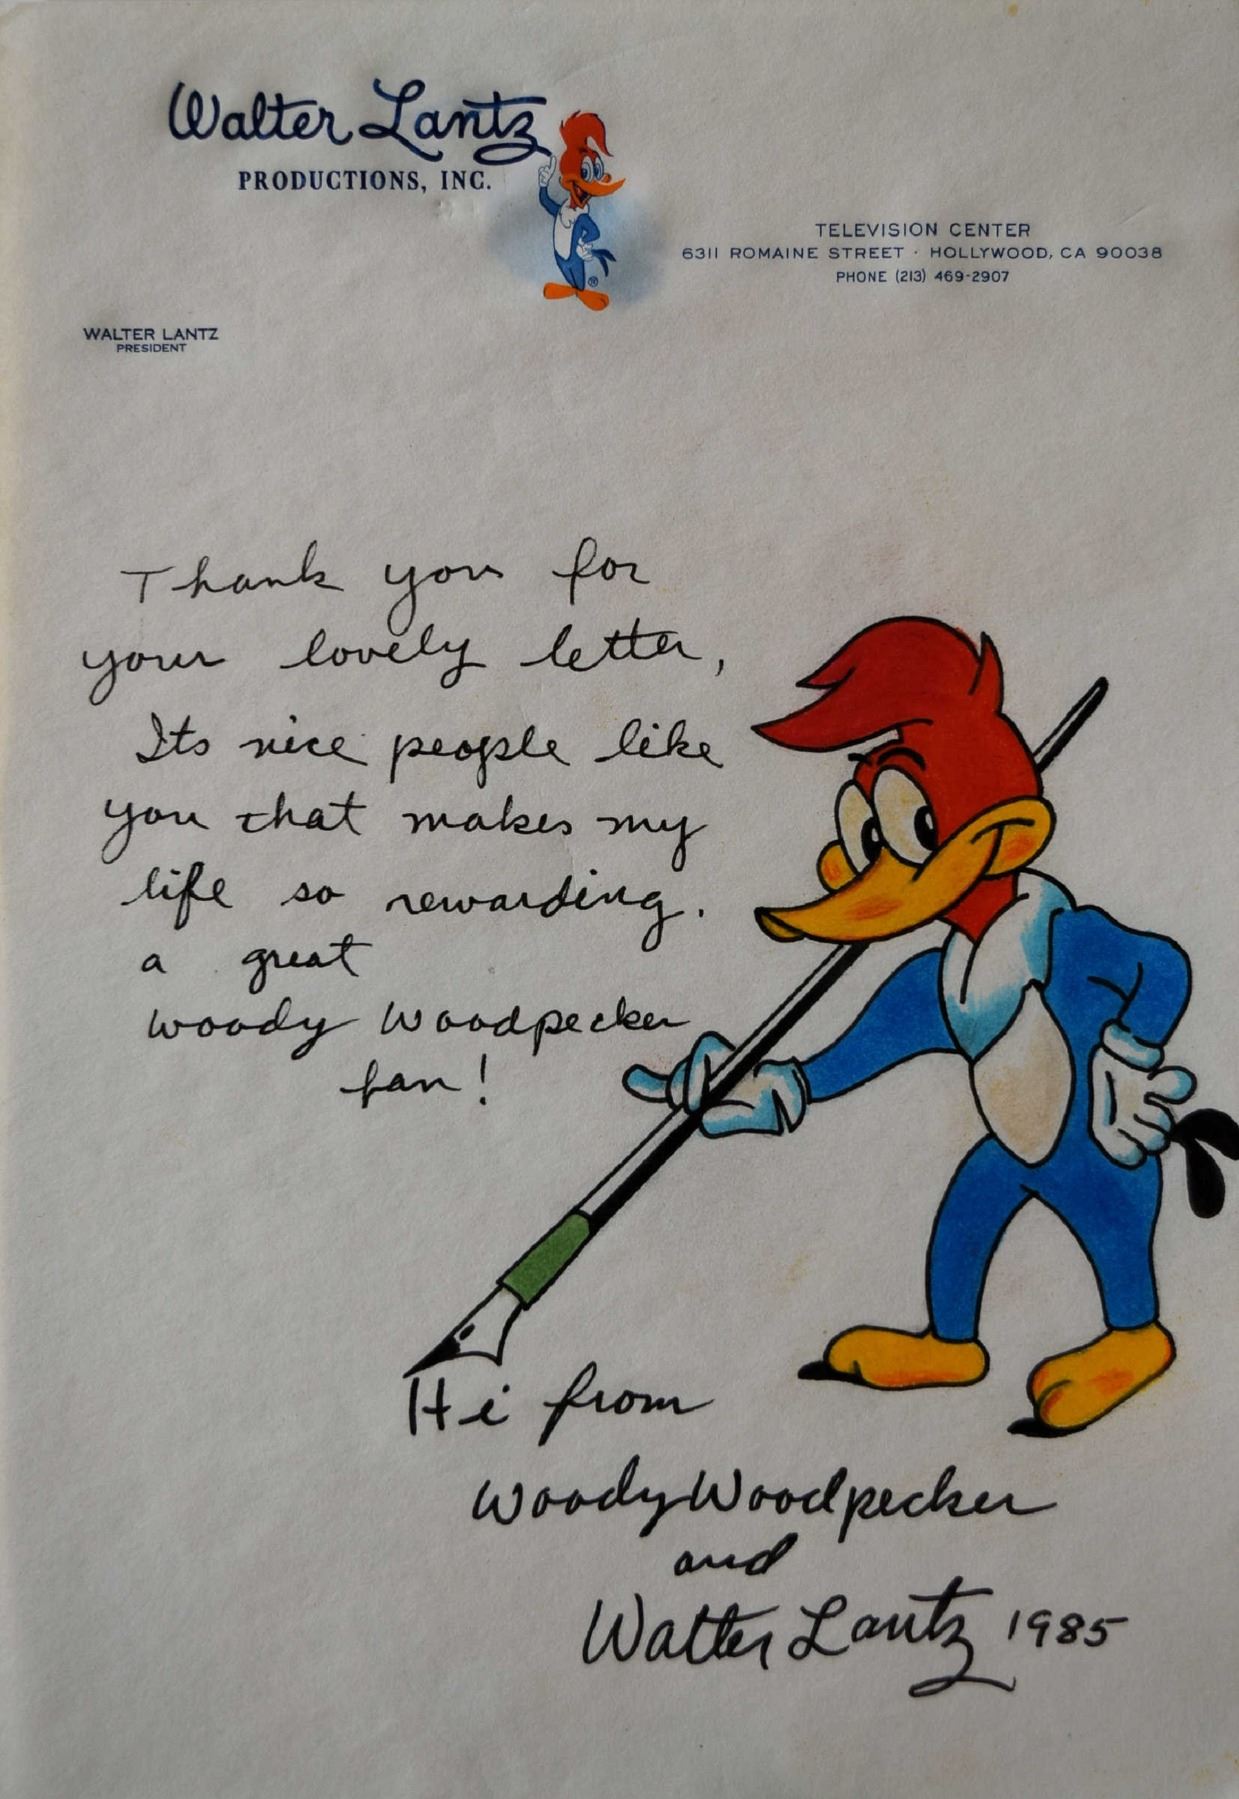 Walter Lantz
PRODUCTIONS, INC.
®
TELEVISION CENTER
6311 ROMAINE STREET · HOLLYWOOD, CA 90038
PHONE (213) 469-2907
WALTER LANTZ
PRESIDENT
Thank you for
your lovely letter,
Its nice people like
you that makes my
life so rewarding.
a great
woody Woodpecker
fan!
Hi from
Woody Woodpecker
and
Walter Lantz 1985